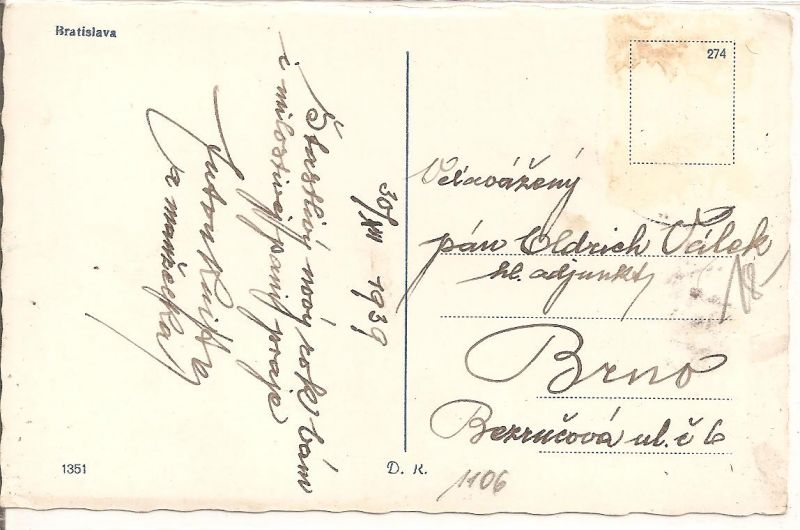 Bratislava
274
30/XII 1939
Šťastlivý nový rok Vám
i milostivej panej praje
a manželka
Veľavážený
pán Oldrich Válek
hl. adjunkt
18
Brno
Bezručová ul. č 6
1351
D. R.
1106